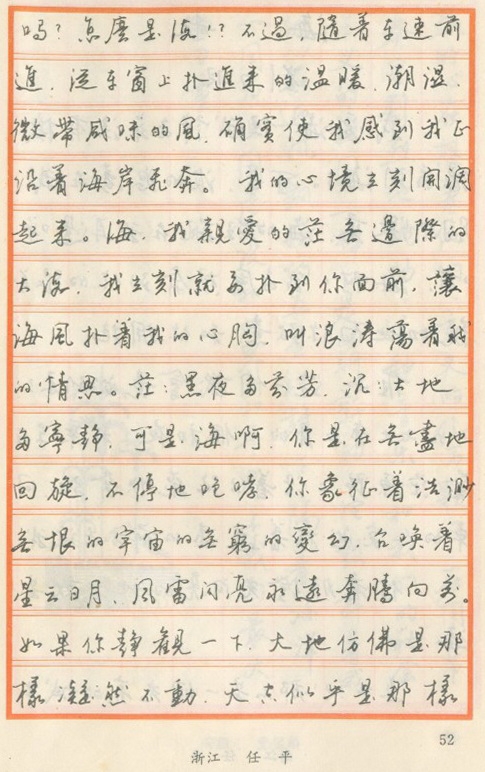 吗？怎麼是海！？不過，隨着车速前
進，從车窗上扑進来的温暖、潮湿、
微带咸味的風，确實使我感到我正
沿着海岸飛奔。我的心境立刻開濶
起来。海，我親愛的茫無邊際的
大海，我立刻就要扑到你面前，讓
海風扑着我的心胸，叫浪涛蕩着我
的情思。茫茫黑夜多芬芳，沉沉大地
多寧静，可是海啊，你是在無盡地
回旋，不停地咆哮，你象征着浩渺
無垠的宇宙的無窮的變幻，召唤着
星云日月、風雷闪亮永遠奔腾向前。
如果你静觀一下，大地仿佛是那
樣凝然不動，天空似乎是那樣
52
浙江 任平